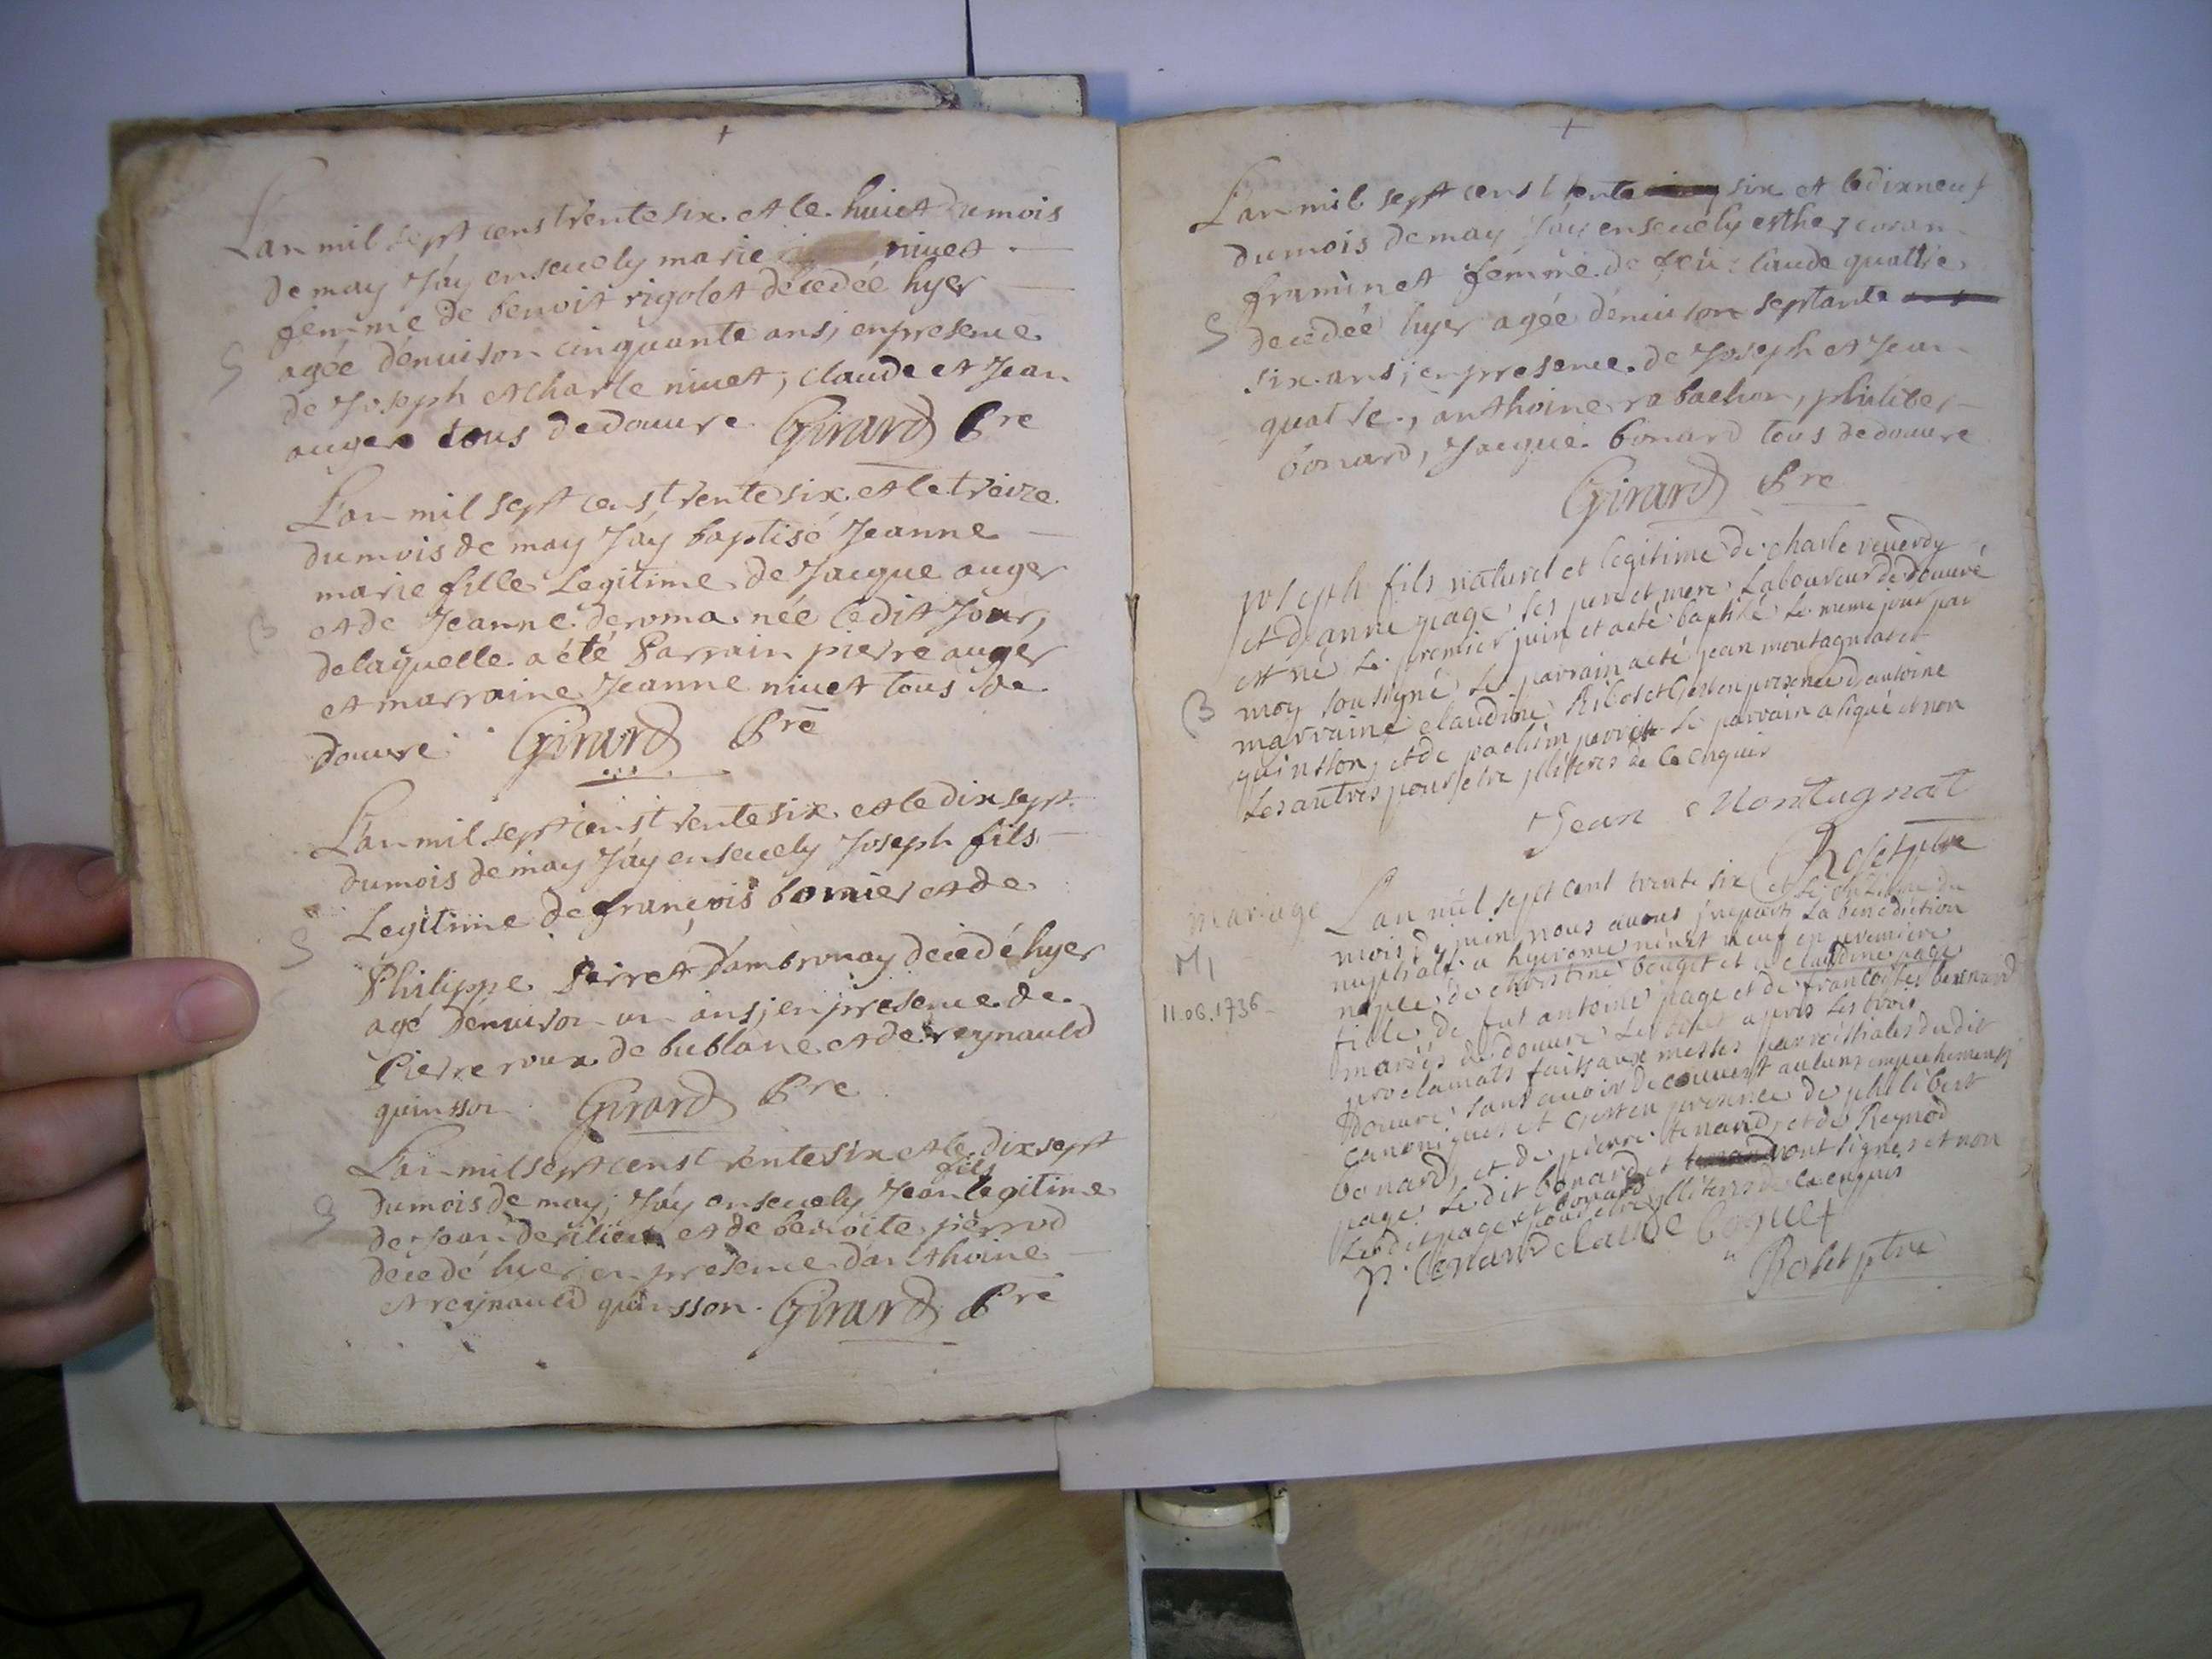 Lan mil sept cens trente six. et le. huict du mois
de may J'ay enseuely marie niuet
femme de benoit rigolet decedée hyer
S
agée d'enuiron cinquante ans, en presence
de Joseph et charle niuet, claude et Jean
auger tous de douure Girard Pre
Lan mil sept cens trente six. et le treize
du mois de may J'ay baptisé Jeanne
marie fille Legitime de Jacque auger
B
et de Jeanne deroma. née ledit Jour,
de laquelle a été Parrain pierre auger
et marraine Jeanne niuet tous de
douure. Girard Pre
Lan mil sept cens trente six. et le dix sept
du mois de may J'ay enseuely Joseph fils
Legitime de françois bornier et de
S
Philippe Perret d'ambronay decedé hyer
agé d'enuiron un ans, en presence de
Pierre roux de bublane et de reynauld
quinsson Girard Pre
Lan mil sept cens trente six et le dix sept
fils
S
du mois de may, J'ay enseuely Jean legitime
de Jean et de benoite pierrod
decedé hyer, en presence d'anthoine
et reynauld quinsson. Girard Pre
Lan mil sept cens trente six et le dixneuf
du mois de may J'ay enseuely esther
framinet femme de feu claude quattre
S
decedée hyer agée d'enuiron septante
six. ans, en presence. de Joseph et Jean
quatre., anthoine rabachon, philiber
bonard, Jacque. bonard tous de douure
Girard Pre
joseph fils naturel et legitime de charle reuerdy
et d'anne page ses pere et mere Laboureur de Douure
est né le premier juin et a eté baptisé le meme jour par
B
moy sousigné le parrain a eté jean montagnat et
marraine claudine Ribolet c'est en presence d'antoine
quinsson, et de pachin perret le parrain a signé et non
Les autres pour etre illiteres de ce enquis
Jean Montagnat
Rolet ptre
mariage
L'an mil sept cent trente six et le onzieme du
mois de juin nous auons imparti La benediction
M1
nuptiale a hyerome niuet veuf en premiere
nopce de christine bouget et a claudine page
11.06.1736
fille de fut antoine page et de francoise bernard
mariés de douure Le tout apres Les trois
proclamats faits aux messes parroissiales dudit
Douure sans auoir decouuert aucuns empechements
canoniques et c'est en presence de philibert
bonard, et de pierre tenand, et de Reynod
page. Le dit bonard et ont signes et non
Ledit page et bonard pour etre illiteres de ce enquis
P. tenand claude boguet
Rolet ptre